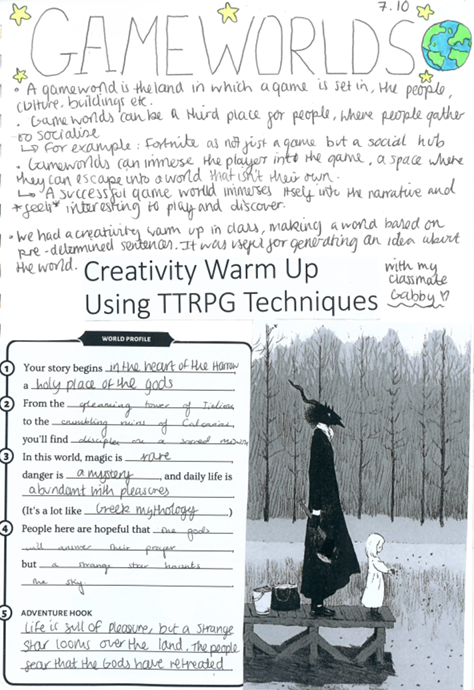 7.10
GAMEWORLDS
• A gameworld is the land in which a game is set in, the people,
culture, buildings etc.
• Gameworlds can be a third place for people, where people gather
to socialise
↳ For example: Fortnite as not just a game but a social hub
• Gameworlds can immerse the player into the game, a space where
they can escape into a world that isn't their own.
↳ A successful game world immerses itself into the narrative and
*feels* interesting to play and discover.
• We had a creativity warm up in class, making a world based on
pre-determined sentences. It was useful for generating an idea about
the world.
Creativity Warm Up
Using TTRPG Techniques
with my
classmate
Gabby ♡
WORLD PROFILE
1 Your story begins in the heart of the Harrow
a holy place of the gods
2 From the gleaming tower of
to the crumbling ruins of
you'll find disciples on a sacred
3 In this world, magic is rare
danger is a mystery, and daily life is
abundant with pleasures
(It's a lot like Greek mythology)
4 People here are hopeful that the gods
will answer their prayer
but a strange star haunts
the sky.
5 ADVENTURE HOOK
Life is full of pleasure, but a strange
star looms over the land. The people
fear that the Gods have retreated